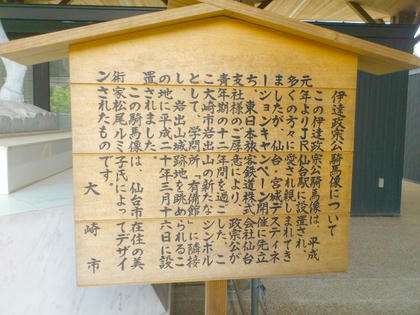 伊達政宗公騎馬像について
この伊達政宗公騎馬像は、平成
元年よりJR仙台駅に設置され
多くの方々に愛され親しまれてき
ましたが、仙台・宮城デスティネ
ーションキャンペーン開催に先立
ち、東日本旅客鉄道株式会社仙台
支社様のご厚意により、政宗公が
青年期の十二年間を過ごした、こ
こ大崎市岩出山の新たなシンボル
として、学問所「有備館」に隣接
し、岩出山城跡地を眺められるこ
の地に平成二十年三月十六日に設
置されました。
この騎馬像は、仙台市在住の美
術家松尾ルミ子氏によってデザイ
ンされたものです。
大崎市